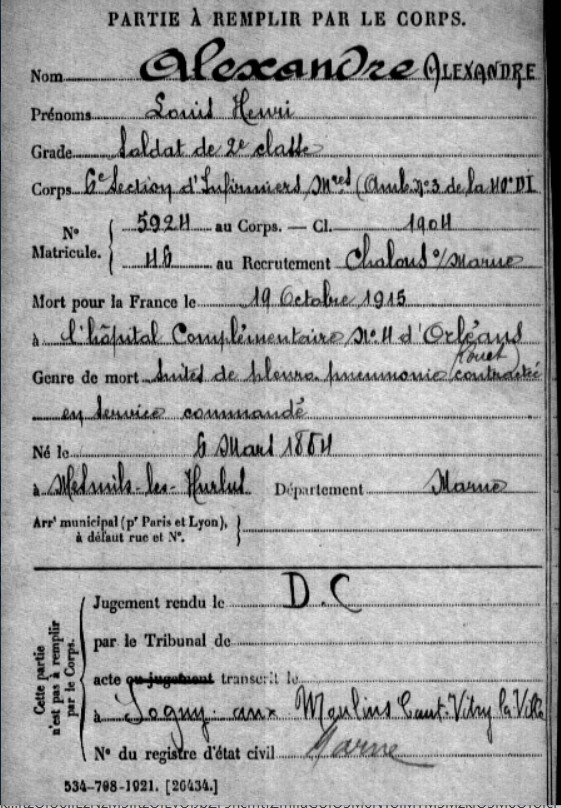 PARTIE À REMPLIR PAR LE CORPS.
Nom Alexandre ALEXANDRE
Prénoms Louis Henri
Grade Soldat de 2e classe
Corps 6e Section d'Infirmiers Mres (Amb. no 3 de la 40e DI
No Matricule. { 5924 au Corps. — Cl. 1904
46 au Recrutement Chalons s/ Marne
Mort pour la France le 19 Octobre 1915
à l'hôpital Complémentaire No 4 d'Orléans
(Loiret)
Genre de mort Suites de pleuro-pneumonie contractée
en service commandé
Né le 6 Mars 1884
à Mesnils-les-Hurlus Département Marne
Arrt municipal (pr Paris et Lyon), à défaut rue et No. }
Cette partie n'est pas à remplir par le Corps. {
Jugement rendu le D.C
par le Tribunal de
acte ou jugement transcrit le
à Togny-aux-Moulins Cant. Vitry la Ville
No du registre d'état civil Marne
534-708-1921. [26434.]